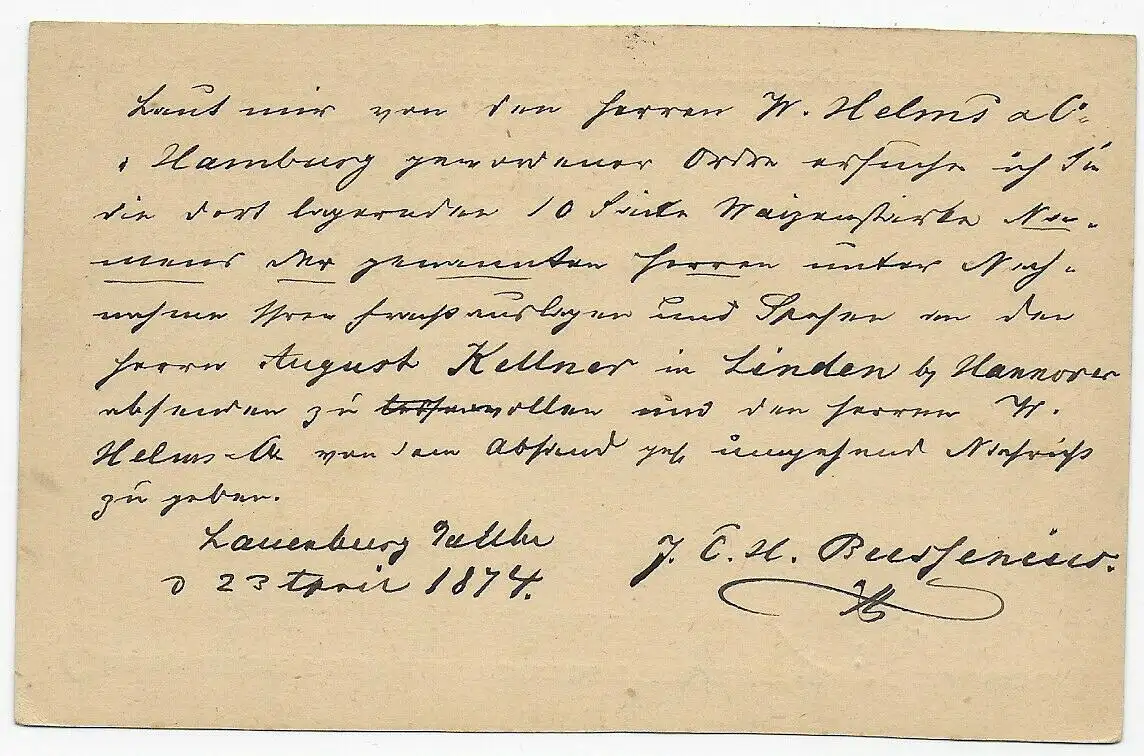 Laut mir von den Herren W. Helms & Co.
Hamburg gewordener Ordre ersuche ich Sie
die dort lagernden 10 Säcke Waizenstärke Na-
mens der genannten Herren unter Nach-
nahme Ihrer Frachtauslagen und Spesen an den
Herrn August Kellner in Linden by Hannover
absenden zu wollen und den Herren W.
Helms & Co von dem Absand gefl umgehend Nachricht
zu geben.
Lauenburg a/d Elbe
d 23 April 1874.
J. C. H. Bussenius.